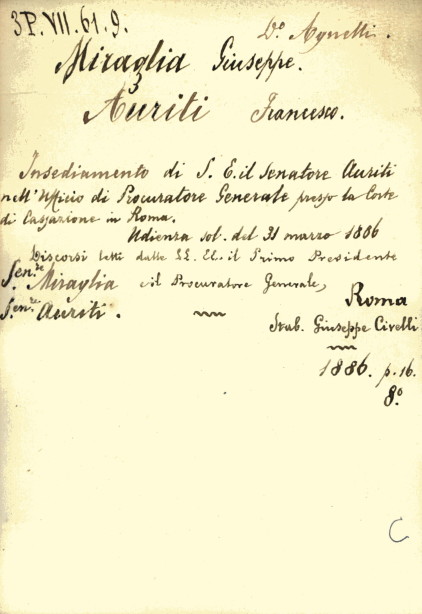 3P.VII.61.9.
D.º Agnelli.
Miraglia Giuseppe.
3
Auriti Francesco.
Insediamento di S. E. il Senatore Auriti
nell'Ufficio di Procuratore Generale presso la Corte
di Cassazione in Roma.
Udienza sol. del 31 marzo 1886
Discorsi letti dalle LL. EE. il Primo Presidente
Sen.re Miraglia e il Procuratore Generale,
Sen.re Auriti.
Roma
Stab. Giuseppe Civelli
1886. p. 16.
8º
C